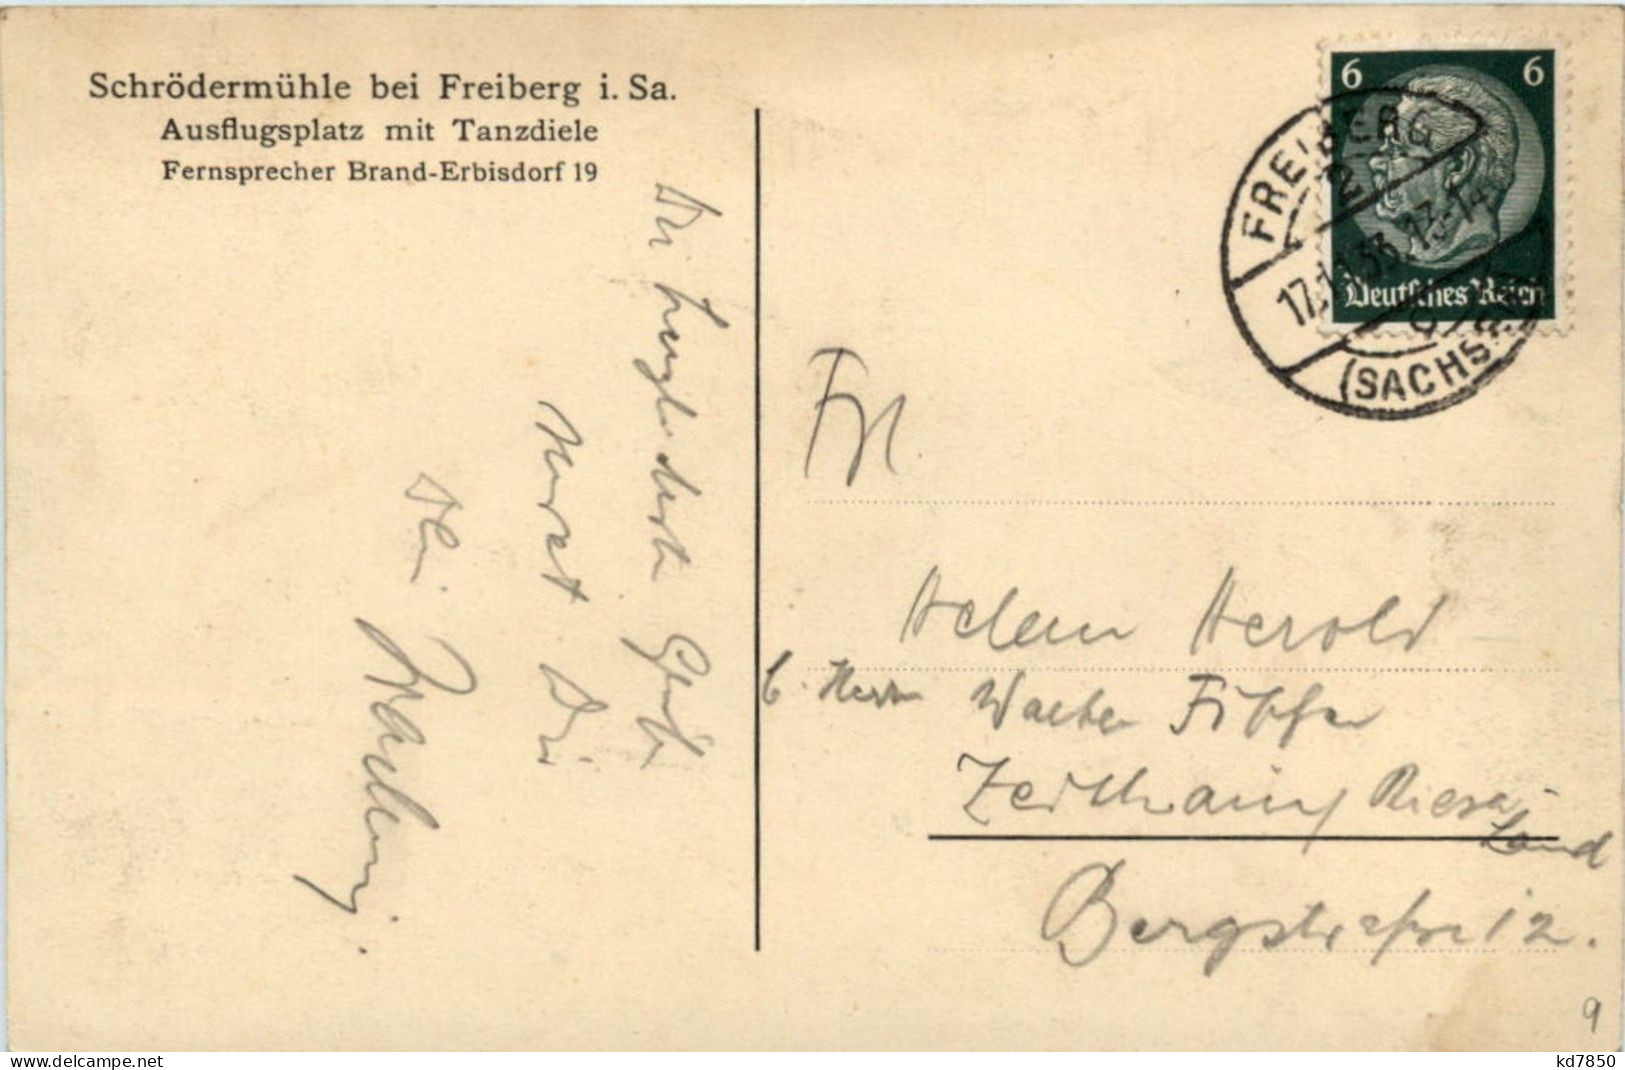 Schrödermühle bei Freiberg i. Sa.
Ausflugsplatz mit Tanzdiele
Fernsprecher Brand-Erbisdorf 19
6 6
Deutsches Reich
FREIBERG
2
13-14
(SACHSEN)
Die herzlichsten Grüße
sendet Dir
Dein
Frl.
Helene Herold
b. Herrn Walter
Zeithain, Riesa-
Land
Bergstraße 12.
9
www.delcampe.net
kd7850